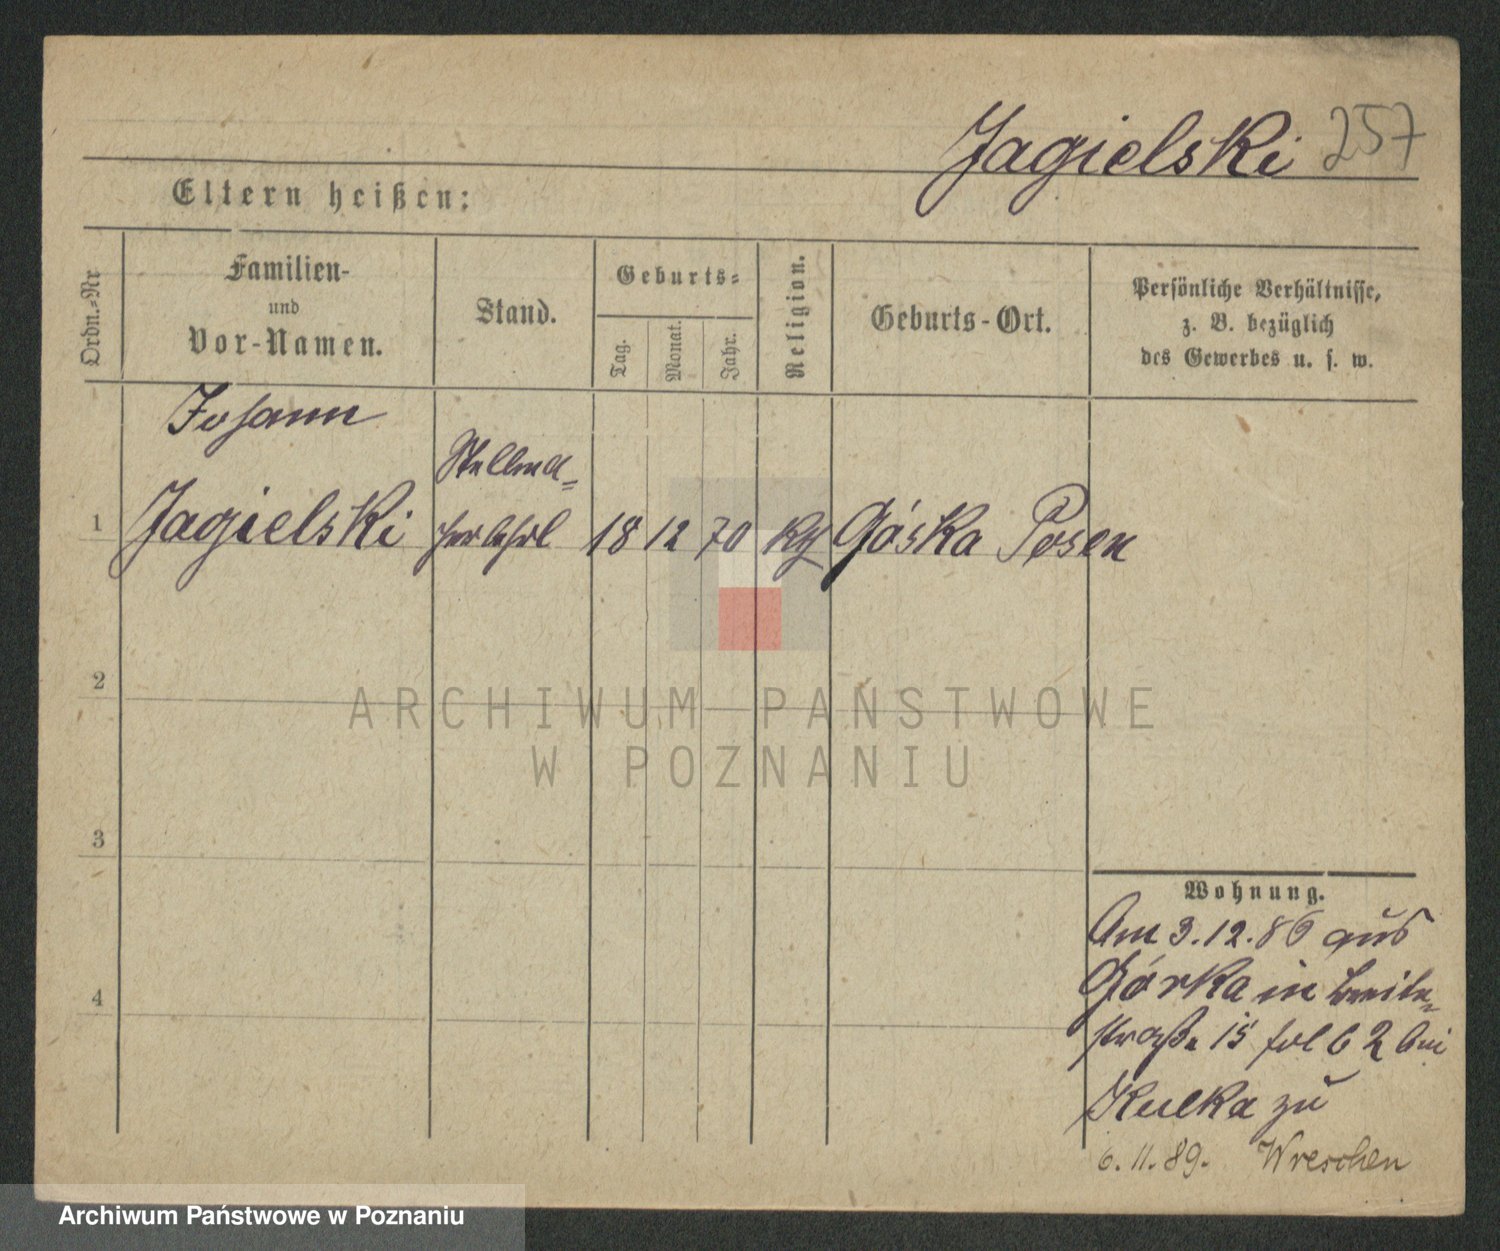 Jagielski 257
Eltern heißen:
Ordn.-Nr
Familien-
und
Vor-Namen.
Stand.
Geburts-
Tag.
Monat.
Jahr.
Religion.
Geburts-Ort.
Persönliche Verhältnisse,
z. B. bezüglich
des Gewerbes u. s. w.
Johann
Stellma-
1 Jagielski cherlehrl 18 12 70 Górka Posen
2
3
4
ARCHIWUM PAŃSTWOWE
W POZNANIU
Wohnung.
Am 3.12.86 aus
Górka in Breite-
straße 15 bei
Kulka zu
6.11.89. Wreschen
Archiwum Państwowe w Poznaniu